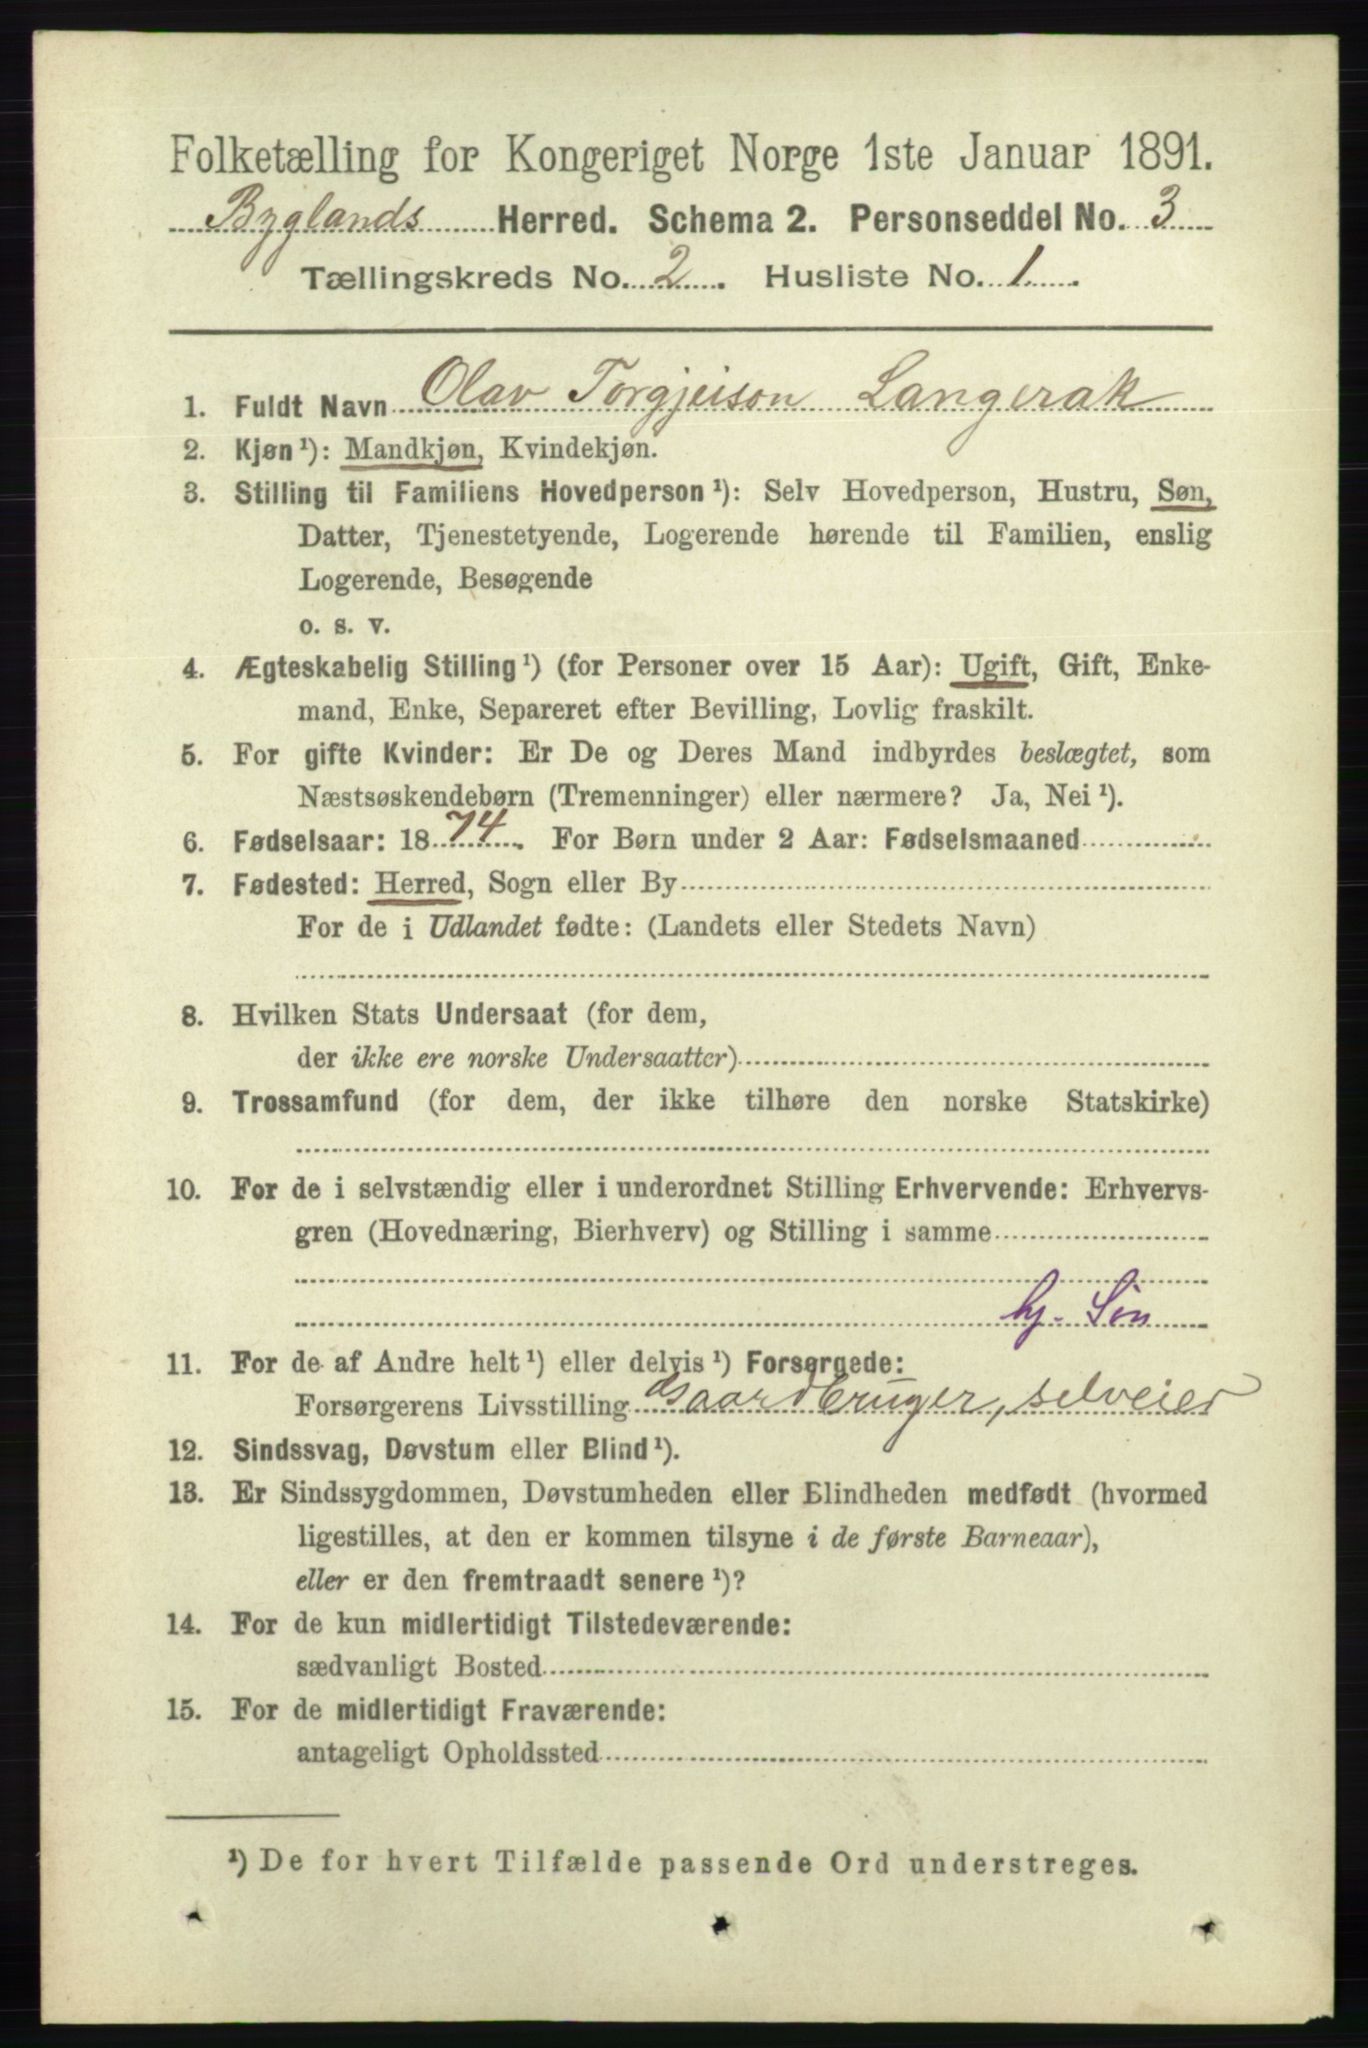 Folketælling for Kongeriget Norge 1ste Januar 1891.
Byglands Herred. Schema 2. Personseddel No. 3
Tællingskreds No. 2. Husliste No. 1.
1. Fuldt Navn Olav Torgjeison Langerak
2. Kjøn¹): Mandkjøn, Kvindekjøn.
3. Stilling til Familiens Hovedperson¹): Selv Hovedperson, Hustru, Søn,
Datter, Tjenestetyende, Logerende hørende til Familien, enslig
Logerende, Besøgende
o. s. v.
4. Ægteskabelig Stilling¹) (for Personer over 15 Aar): Ugift, Gift, Enke-
mand, Enke, Separeret efter Bevilling, Lovlig fraskilt.
5. For gifte Kvinder: Er De og Deres Mand indbyrdes beslægtet, som
Næstsøskendebørn (Tremenninger) eller nærmere? Ja, Nei¹).
6. Fødselsaar: 1874. For Børn under 2 Aar: Fødselsmaaned
7. Fødested: Herred, Sogn eller By
For de i Udlandet fødte: (Landets eller Stedets Navn)
8. Hvilken Stats Undersaat (for dem,
der ikke ere norske Undersaatter)
9. Trossamfund (for dem, der ikke tilhøre den norske Statskirke)
10. For de i selvstændig eller i underordnet Stilling Erhvervende: Erhvervs-
gren (Hovednæring, Bierhverv) og Stilling i samme
hj. Søn
11. For de af Andre helt¹) eller delvis¹) Forsørgede:
Forsørgerens Livsstilling Gaardbruger, selveier
12. Sindssvag, Døvstum eller Blind¹).
13. Er Sindssygdommen, Døvstumheden eller Blindheden medfødt (hvormed
ligestilles, at den er kommen tilsyne i de første Barneaar),
eller er den fremtraadt senere¹)?
14. For de kun midlertidigt Tilstedeværende:
sædvanligt Bosted
15. For de midlertidigt Fraværende:
antageligt Opholdssted
¹) De for hvert Tilfælde passende Ord understreges.